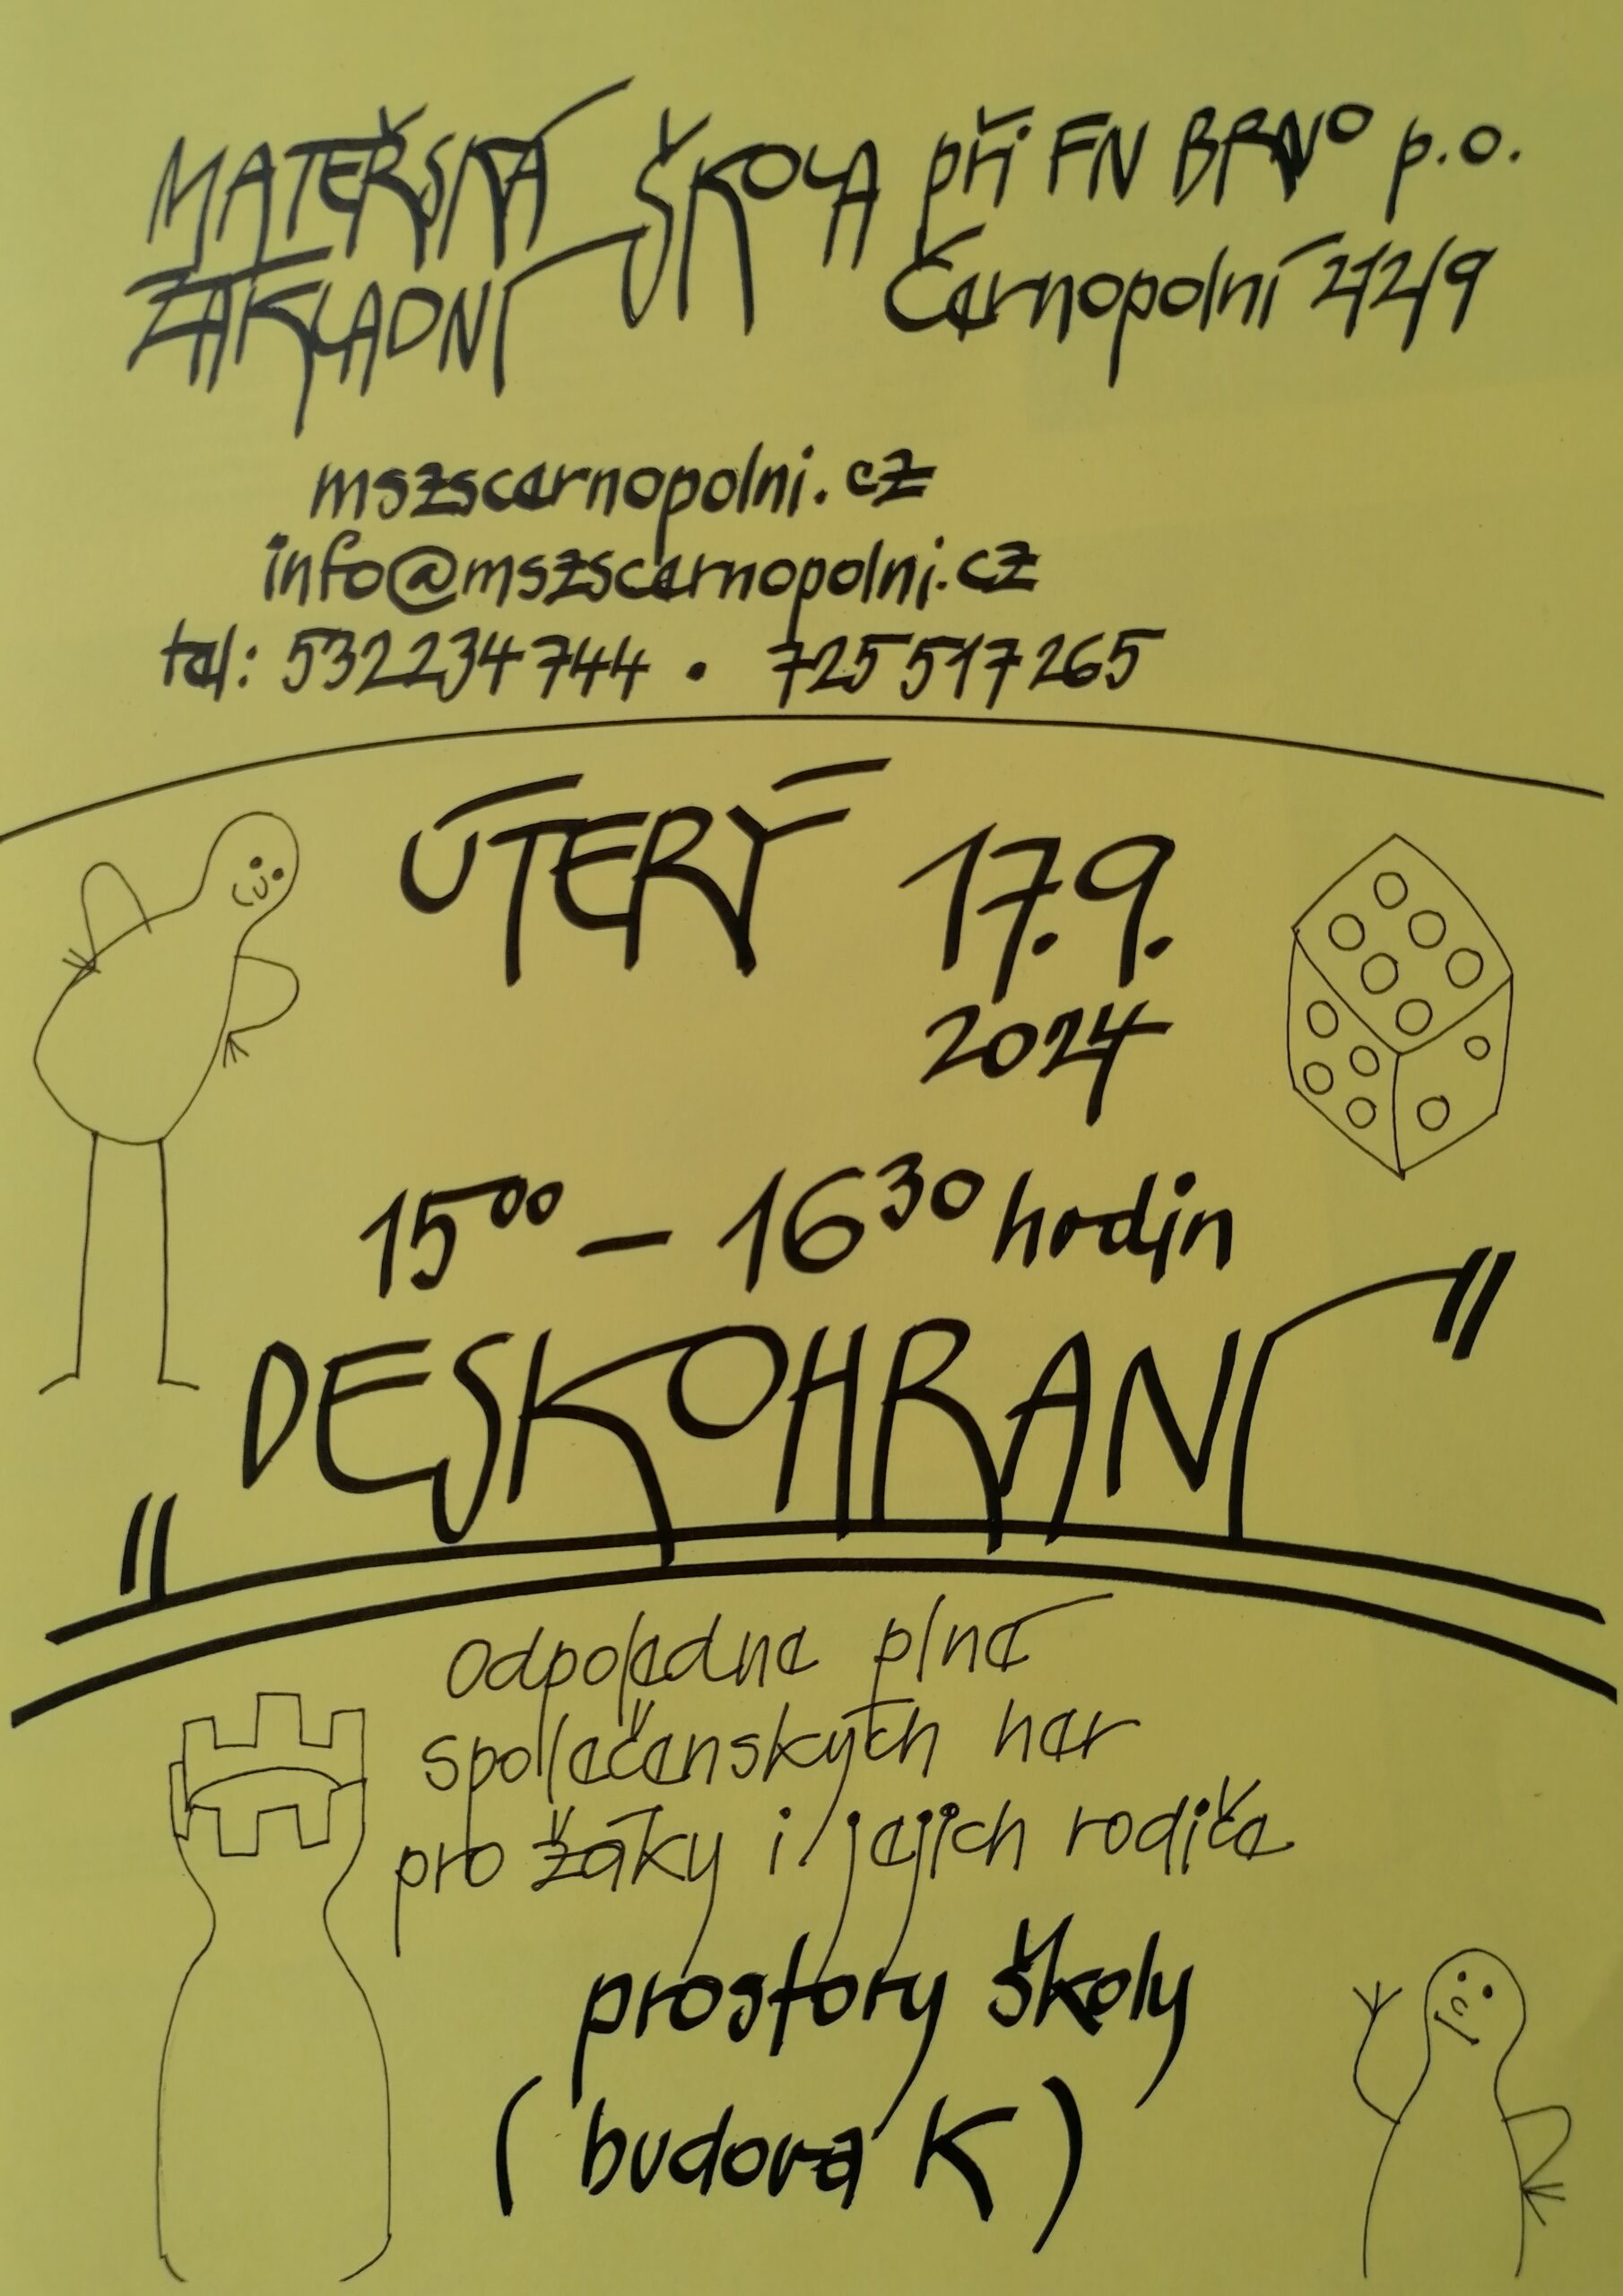 MATEŘSKÁ ŠKOLA při FN BRNO p.o.
ZÁKLADNÍ Černopolní 212/9
mszscernopolni.cz
info@mszscernopolni.cz
tel: 532234744 • 725517265
ÚTERÝ 17.9.
2024
15⁰⁰ - 16³⁰ hodin
„DESKOHRANÍ"
Odpoledne plné
společenských her
pro žáky i jejich rodiče
prostory školy
(budova K)